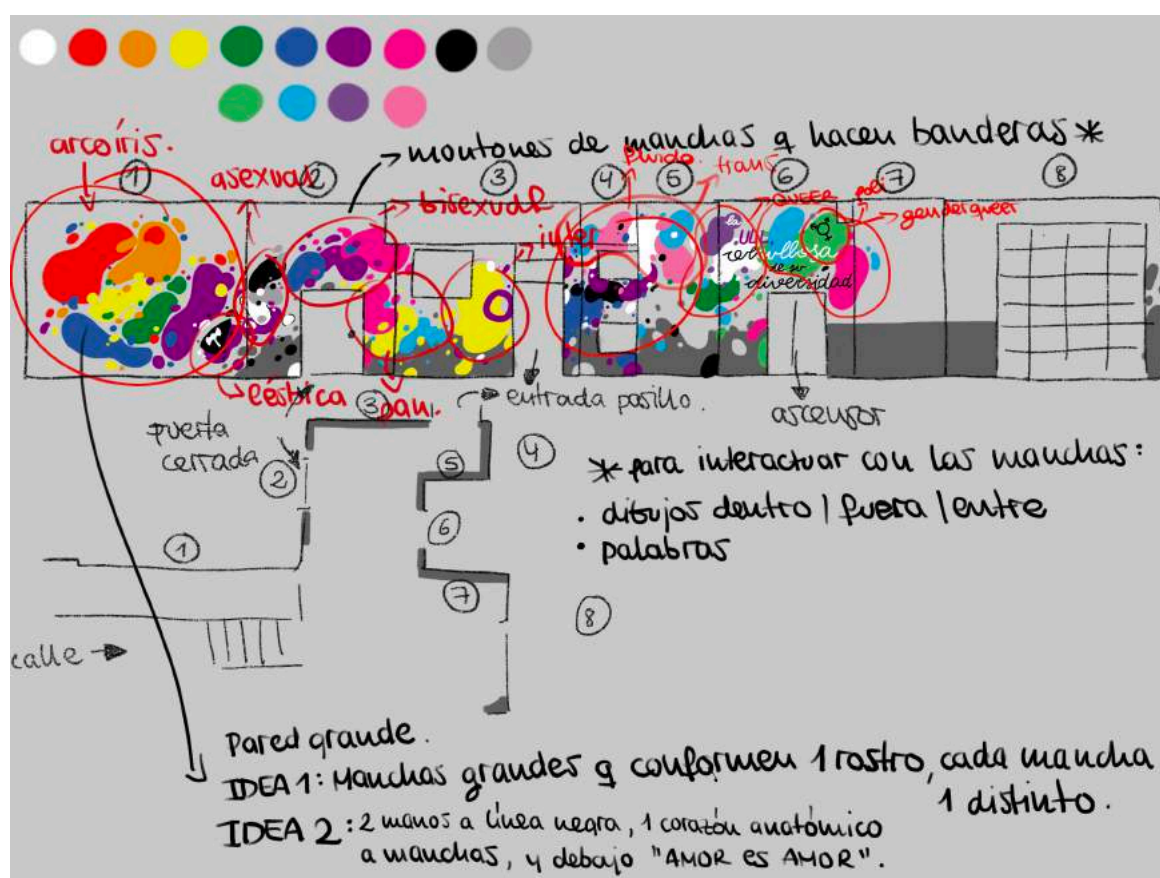 arcoíris.
montones de manchas q hacen banderas *
1
asexual
2
3
bisexual
4
fluido.
5
trans
6
QUEER
poli
7
genderqueer
8
inter
la
ULL
orgullosa
de su
diversidad
lésbica
pan.
puerta
cerrada
3
entrada pasillo.
ascensor
2
5
4
6
1
7
8
calle
* para interactuar con las manchas:
. dibujos dentro / fuera / entre
• palabras
Pared grande.
IDEA 1: Manchas grandes q conformen 1 rostro, cada mancha
1 distinto.
IDEA 2: 2 manos a línea negra, 1 corazón anatómico
a manchas, y debajo "AMOR es AMOR".